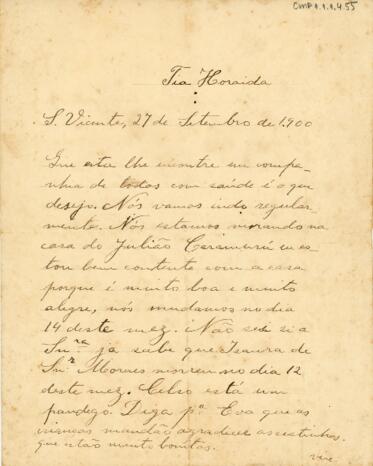 CMP 1.1.1.4.55
Tia Horaida
S. Vicente, 27 de Setembro de 1900
Que esta lhe encontre em compa-
nhia de todos com saúde é o que
desejo. Nós vamos indo regular-
mente. Nós estamos morando na
casa do Julião Caramurú es-
tou bem contente com a casa
porque é muito boa e muito
alegre, nós mudamos no dia
14 deste mez. Não sei si a
Snra. já sabe que Isaura de
Snr. Moraes morreu no dia 12
deste mez. Celso está um
pandego. Diga pa. Eva que as
mandão agradecer as cestinhas
que estão muito bonitas.